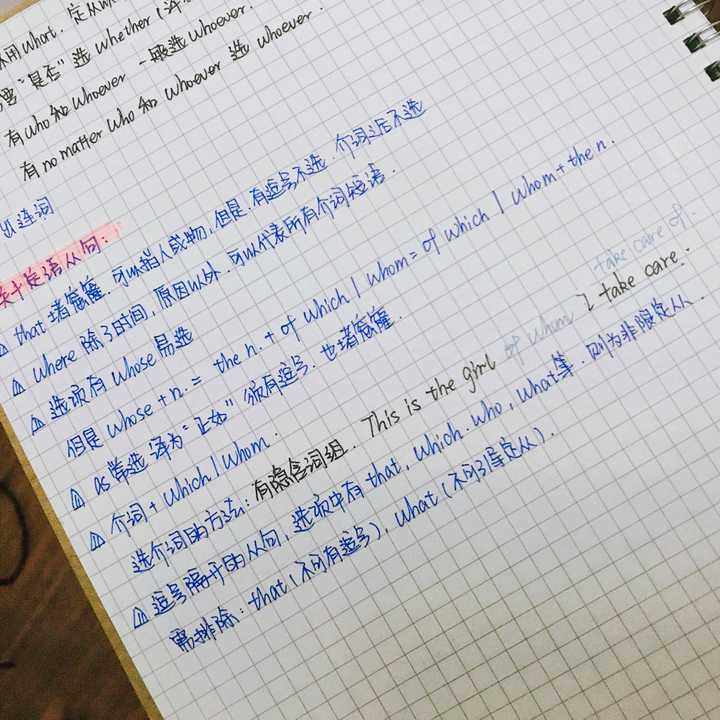 用what. 定从
"是否" 选 whether
有who 和 whoever 一般选 whoever.
有 no matter who 和 whoever 选 whoever.
连词
关于定语从句:
△ that 堵窟窿. 可以指人或物, 但是. 有逗号不选. 介词之后不选
△ where 除了时间, 原因以外. 可以代表所有介词短语.
△ 选项有 whose 易选
但是 whose + n. = the n. + of which | whom = of which | whom + the n.
△ as 常选. 译为 "正如" 须有逗号. 也堵窟窿.
take care of.
△ 介词 + which | whom.
选介词的方法: 有隐含词组. This is the girl of whom I take care.
△ 逗号隔开的从句, 选项中有 that, which. who, what等. 则为非限定从.
需排除: that (不可有逗号), what (不可引导定从).